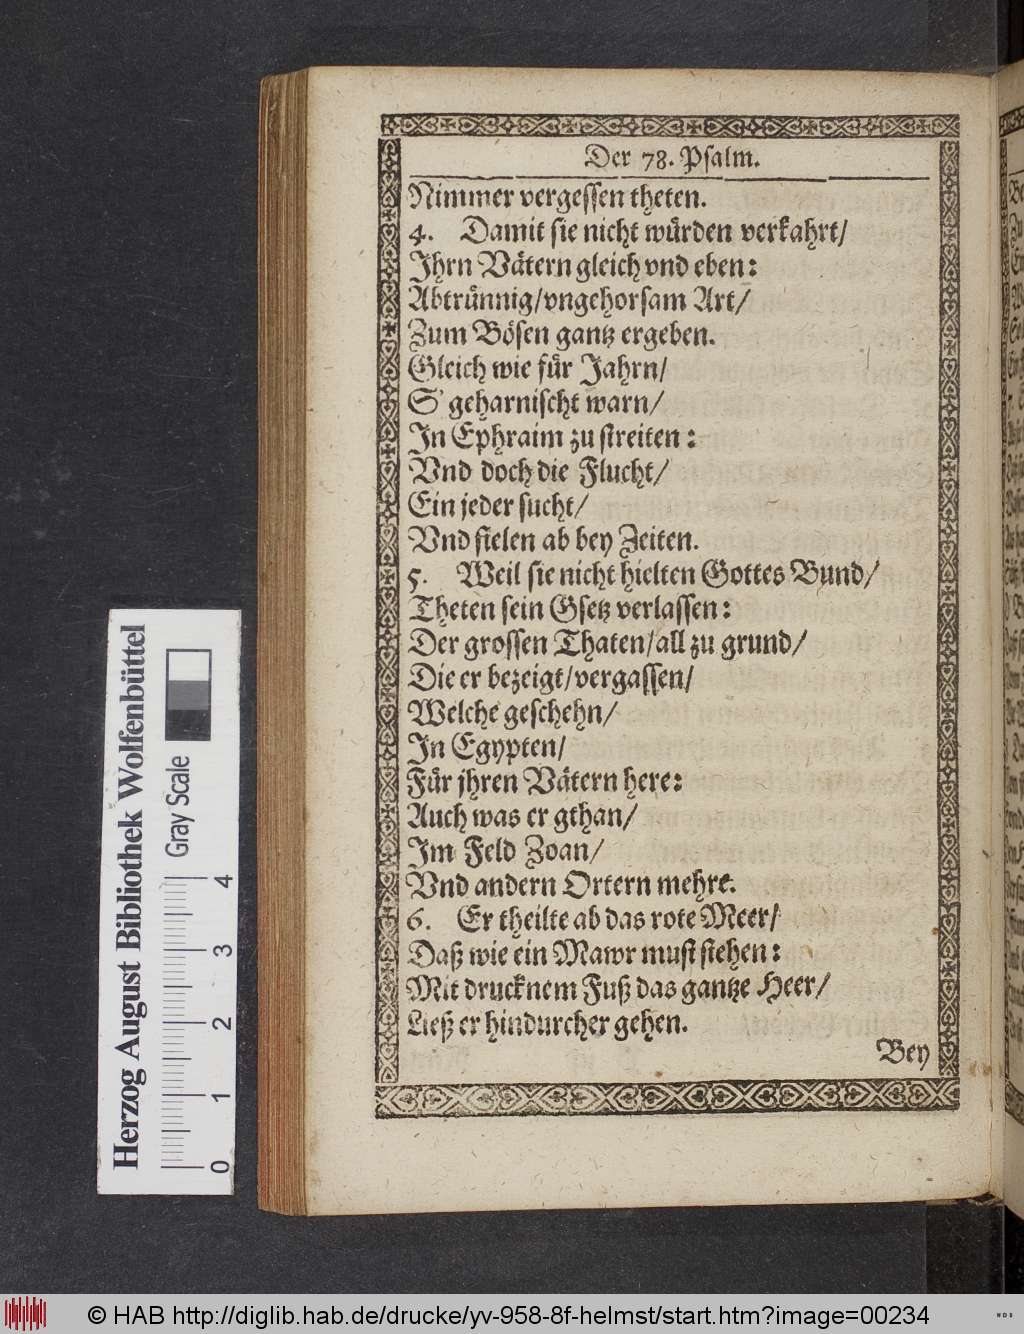 Der 78. Psalm.
Nimmer vergessen theten.
4. Damit sie nicht wuͤrden verkahrt/
Jhrn Vaͤtern gleich vnd eben:
Abtruͤnnig/vngehorsam Art/
Zum Boͤsen gantz ergeben.
Gleich wie fuͤr Jahrn/
S' geharnischt warn/
Jn Ephraim zu streiten:
Vnd doch die Flucht/
Ein jeder sucht/
Vnd fielen ab bey Zeiten.
5. Weil sie nicht hielten Gottes Bund/
Theten sein Gsetz verlassen:
Der grossen Thaten/all zu grund/
Die er bezeigt/vergassen/
Welche geschehn/
Jn Egypten/
Fuͤr jhren Vaͤtern here:
Auch was er gthan/
Jm Feld Zoan/
Vnd andern Ortern mehre.
6. Er theilte ab das rote Meer/
Daß wie ein Mawr must stehen:
Mit drucknem Fuß das gantze Heer/
Ließ er hindurcher gehen.
Bey
Herzog August Bibliothek Wolfenbüttel
Gray Scale
0 1 2 3 4
© HAB http://diglib.hab.de/drucke/yv-958-8f-helmst/start.htm?image=00234